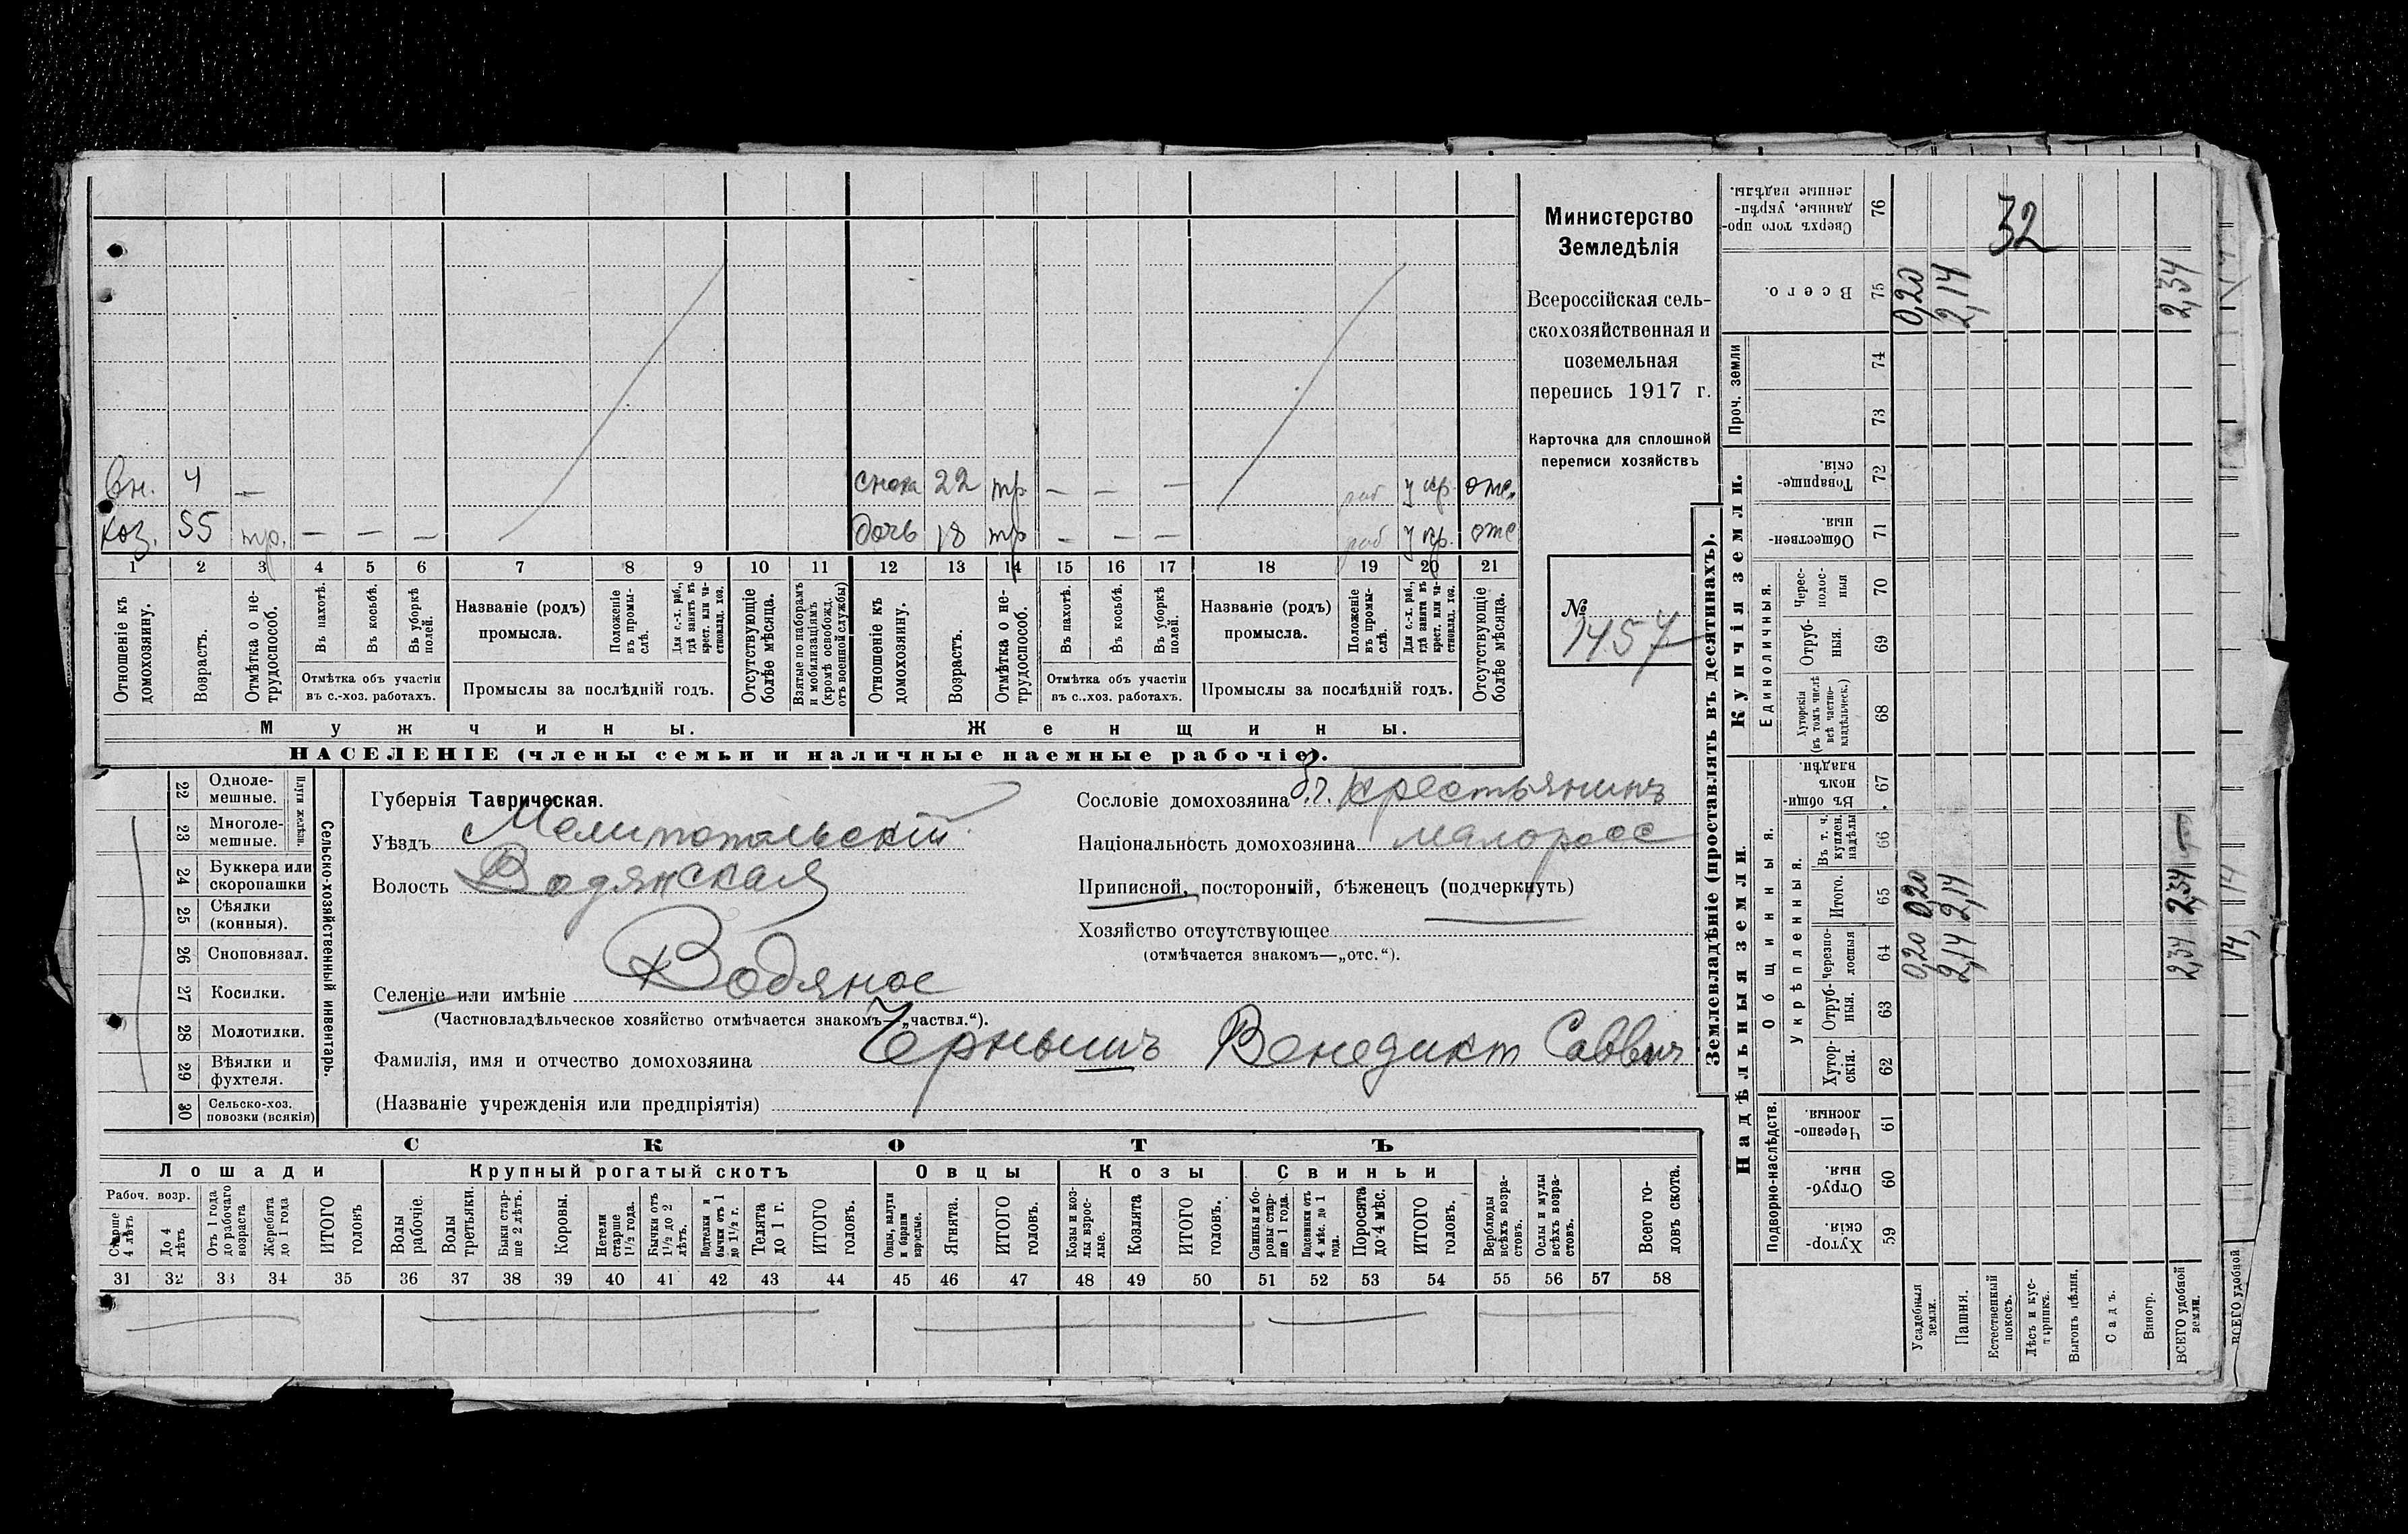 Министерство
Земледѣлія
Всероссійская сель-
скохозяйственная и
поземельная
перепись 1917 г.
Карточка для сплошной
переписи хозяйствъ
№
1457
вн. 4 —
снока 22 тр — — — раб у кр. отс.
хоз. 55 тр. — — —
дочь 18 тр — — — раб у кр. отс
1 2 3 4 5 6 7 8 9 10 11 12 13 14 15 16 17 18 19 20 21
Отношеніе къ домохозяину.
Возрастъ.
Отмѣтка о не-трудоспособ.
Въ пахотѣ.
Въ косьбѣ.
Въ уборкѣ полей.
Отмѣтка объ участіи
въ с.-хоз. работахъ.
Названіе (родъ)
промысла.
Положеніе въ промы-слѣ.
Для с.-х. раб., гдѣ занятъ въ крест. или ча-стновлад. хоз.
Промыслы за послѣдній годъ.
Отсутствующіе болѣе мѣсяца.
Взятые по наборамъ и мобилизаціямъ (кромѣ освобожд. отъ военной службы)
Отношеніе къ домохозяину.
Возрастъ.
Отмѣтка о не-трудоспособ.
Въ пахотѣ.
Въ косьбѣ.
Въ уборкѣ полей.
Отмѣтка объ участіи
въ с..хоз. работахъ.
Названіе (родъ)
промысла.
Положеніе въ промы-слѣ.
Для с.-х. раб., гдѣ занята въ крест. или ча-стновлад. хоз.
Промыслы за послѣдній годъ.
Отсутствующіе болѣе мѣсяца.
Мужчины.
Женщины.
НАСЕЛЕНІЕ (члены семьи и наличные наемные рабочіе).
22 Одноле-мешные.
23 Многоле-мешные.
24 Буккера или скоропашки
25 Сѣялки (конныя).
26 Сноповязал.
27 Косилки.
28 Молотилки.
29 Вѣялки и фухтеля.
30 Сельско-хоз. повозки (всякія)
Плуги желѣзн.
Сельско-хозяйственный инвентарь.
Губернія Таврическая.
Уѣздъ Мелитопольскій
Волость Водянская
Селеніе или имѣніе Водяное
(Частновладѣльческое хозяйство отмѣчается знакомъ—„частвл.“).
Сословіе домохозяина б. крестьянинъ
Національность домохозяина малоросс
Приписной, посторонній, бѣженецъ (подчеркнуть)
Хозяйство отсутствующее
(отмѣчается знакомъ—„отс.“).
Фамилія, имя и отчество домохозяина Чернышъ Венедикт Саввич
(Названіе учрежденія или предпріятія)
СКОТЪ
Лошади Крупный рогатый скотъ Овцы Козы Свиньи
Рабоч. возр.
Старше 4 лѣтъ
До 4 лѣтъ
Отъ 1 года до рабочаго возраста
Жеребята до 1 года
ИТОГО головъ
Волы рабочіе.
Волы третьяки.
Быки стар-ше 2 лѣтъ.
Коровы.
Нетели старше 1½ года.
Бычки отъ 1½ до 2 лѣтъ.
Подтелки и бычки отъ 1 до 1½ г.
Телята до 1 г.
ИТОГО головъ.
Овцы, валухи и бараны взрослые.
Ягнята.
ИТОГО головъ.
Козы и коз-лы взрос-лые.
Козлята
ИТОГО головъ.
Свиньи и бо-ровы стар-ше 1 года.
Подсвинки отъ 4 мѣс. до 1 года.
Поросята до 4 мѣс.
ИТОГО головъ.
Верблюды всѣхъ возра-стовъ.
Ослы и мулы всѣхъ возра-стовъ.
Всего го-ловъ скота.
31 32 33 34 35 36 37 38 39 40 41 42 43 44 45 46 47 48 49 50 51 52 53 54 55 56 57 58
Землевладѣніе (проставлять въ десятинахъ).
Надѣльныя земли.
Купчія земли.
Проч. земли
Подворно-наслѣдств.
Общинныя.
Укрѣпленныя.
Единоличныя.
59 Хутор-скія.
60 Отруб-ныя.
61 Черезпо-лосныя.
62 Хутор-скія.
63 Отруб-ныя.
64 Черезпо-лосныя
65 Итого.
66 Въ т. ч. куплен. надѣлы
67 Въ общи-номъ владѣн.
68 Хуторскія (въ томъ числѣ всѣ частно-владѣльческ.)
69 Отруб-ныя.
70 Черес-полос-ныя
71 Обществен-ныя.
72 Товарище-скія.
73
74
75 Всего.
76 Сверхъ того про-данные, укрѣп-ленные надѣлы.
Усадебныя земли. 0,20 0,20 0,20
Пашня. 2,14 2,14 2,14
Естественный покосъ.
Лѣсъ и кус-тарникъ.
Выгонъ цѣлин.
Садъ.
Виногр.
ВСЕГО удобной земли. 2,34 2,34 2,34
32
ВСЕГО удобной